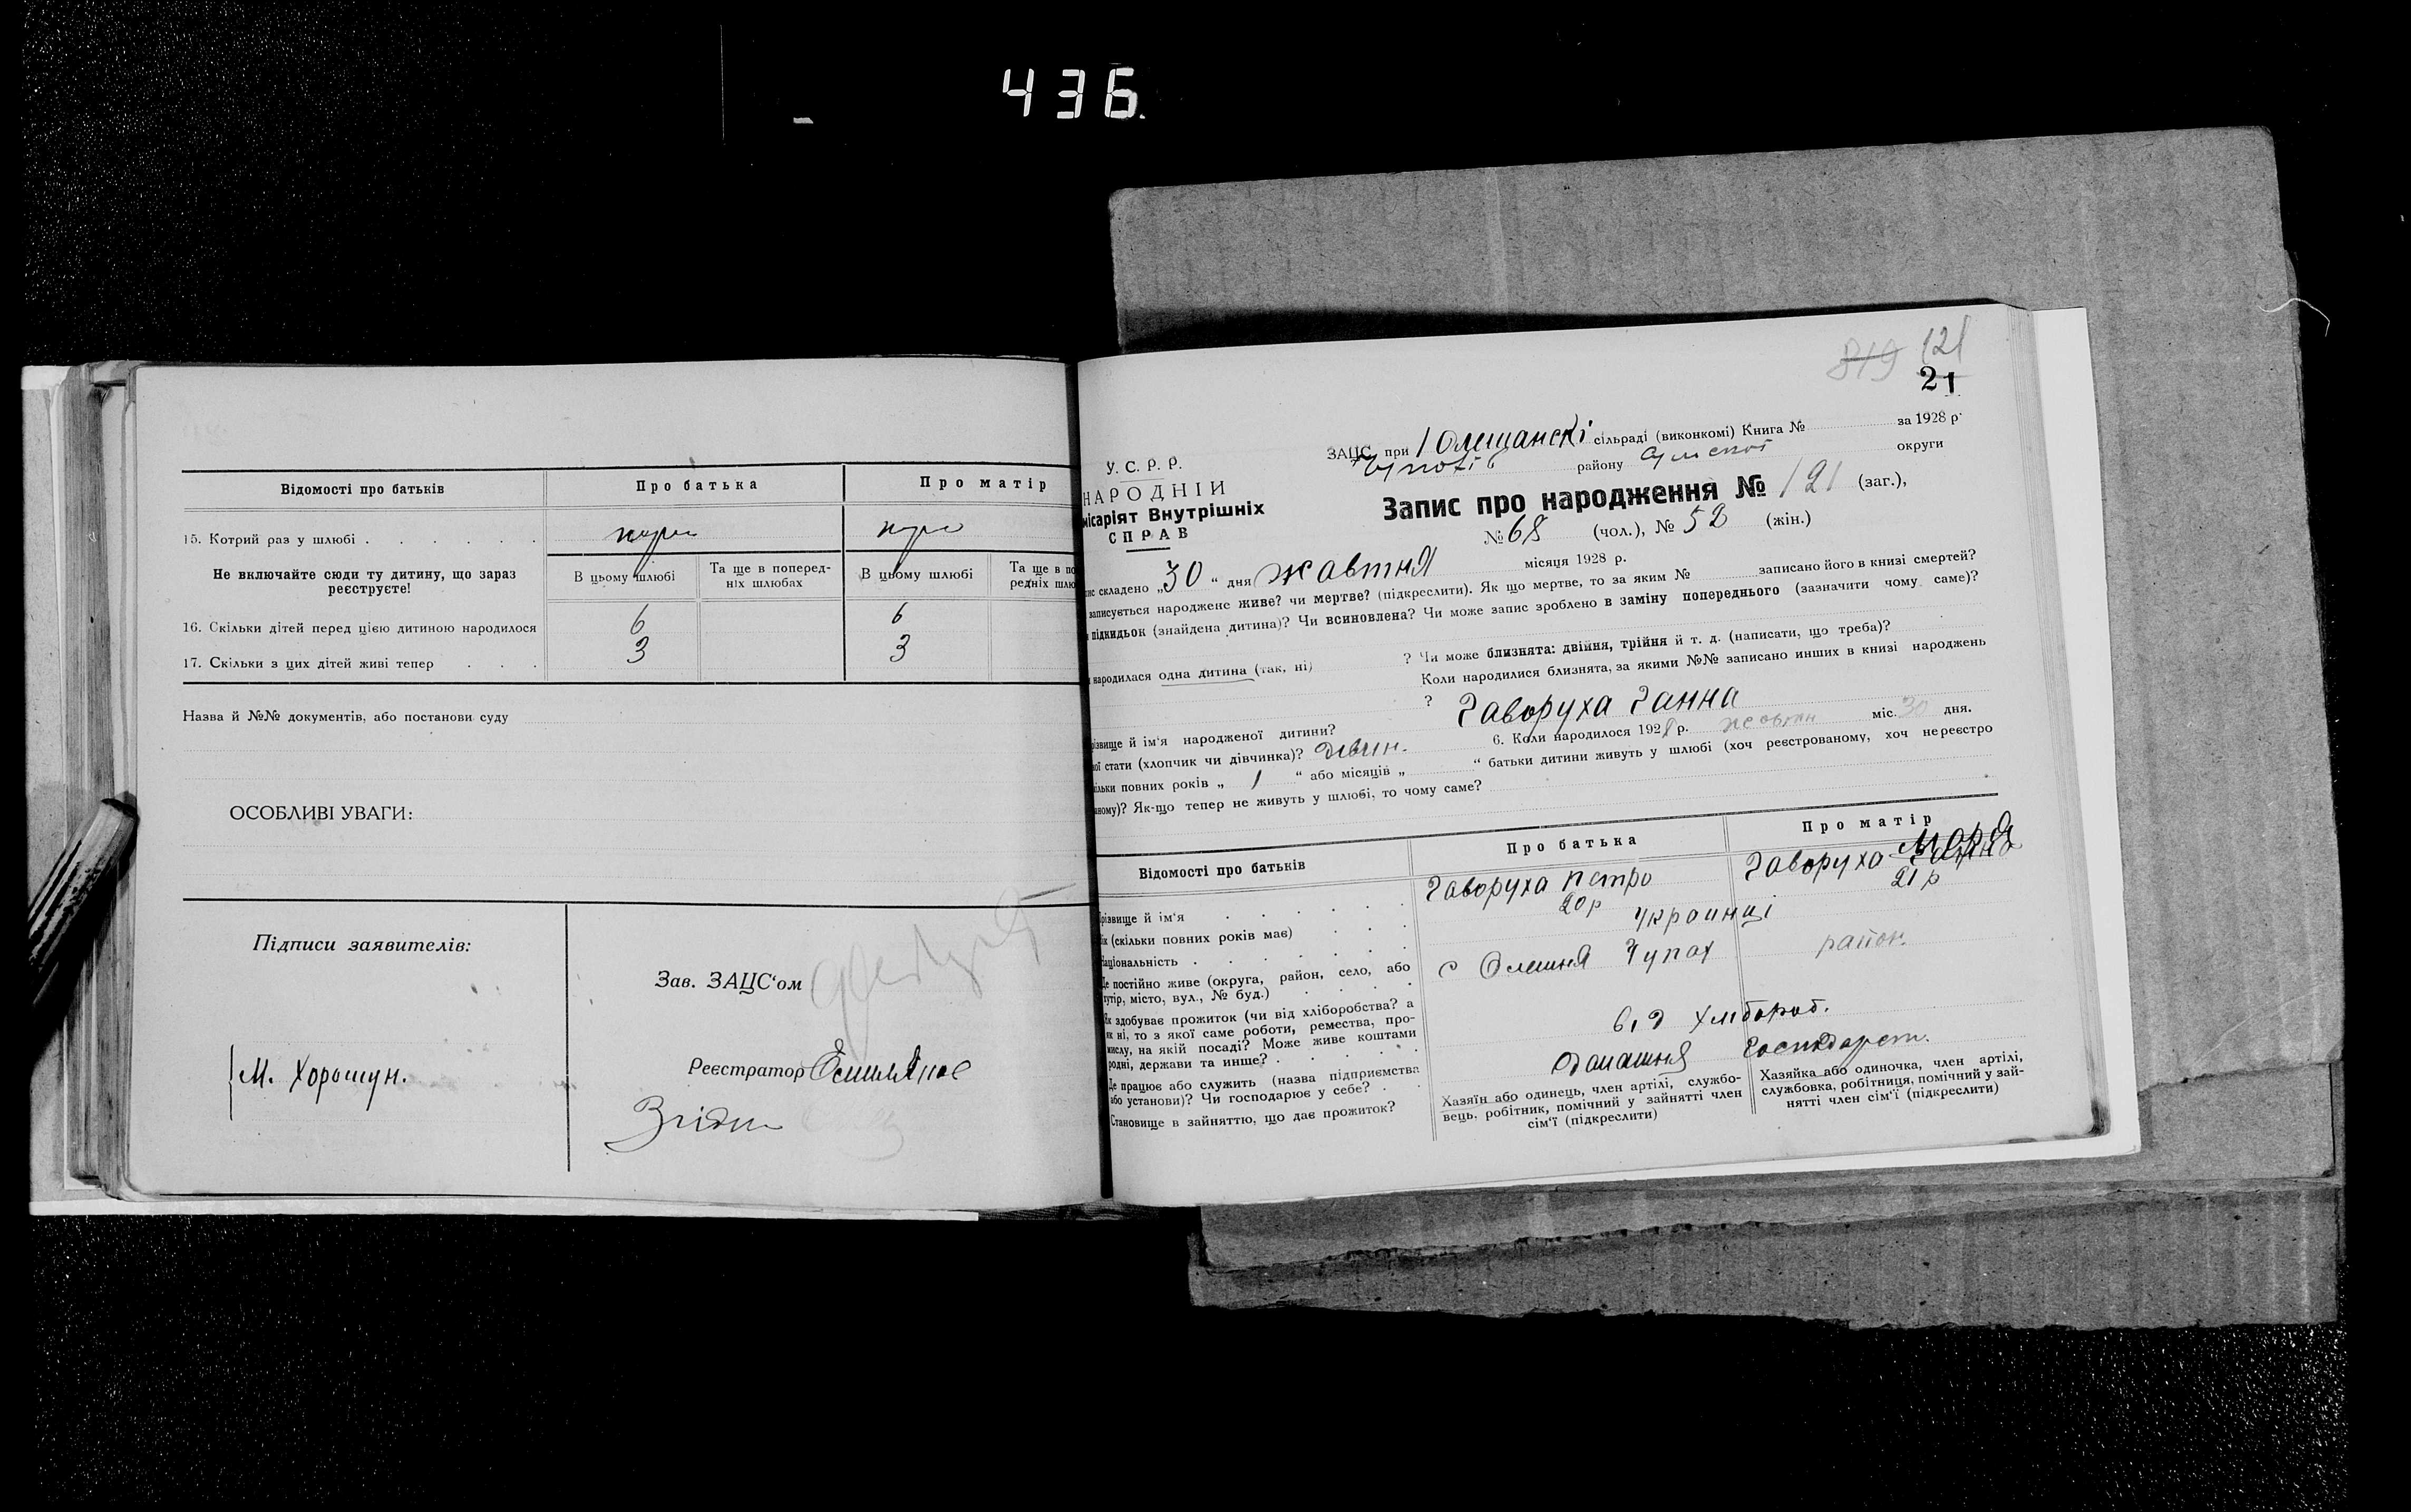 436.
Відомості про батьків
Про батька
Про матір
15. Котрий раз у шлюбі
Не включайте сюди ту дитину, що зараз реєструєте!
В цьому шлюбі
Та ще в поперед-
ніх шлюбах
В цьому шлюбі
Та ще в по
редніх шлю
16. Скільки дітей перед цією дитиною народилося
6
6
17. Скільки з цих дітей живі тепер
3
3
Назва й №№ документів, або постанови суду
ОСОБЛИВІ УВАГИ:
Підписи заявителів:
М. Хорошун.
Зав. ЗАЦС'ом
Реєстратор
819 121
21
У. С. Р. Р.
НАРОДНІЙ
місаріят Внутрішніх
СПРАВ
ЗАЦС при Олешанскі сільраді (виконкомі) Книга № за 1928 р.
району округи
Запис про народження № 121 (заг.),
№ 68 (чол.), № 52 (жін.)
ис складено „30“ дня жавтня місяця 1928 р.
записується народжене живе? чи мертве? (підкреслити). Як що мертве, то за яким № записано його в книзі смертей?
підкидьок (знайдена дитина)? Чи всиновлена? Чи може запис зроблено в заміну попереднього (зазначити чому саме)?
народилася одна дитина (так, ні) ? Чи може близнята: двійня, трійня й т. д. (написати, що треба)?
Коли народилися близнята, за якими №№ записано инших в книзі народжень
?
різвище й ім'я народженої дитини? Гаворуха Ганна
ої стати (хлопчик чи дівчинка)? Дівчин. 6. Коли народилося 1928 р. жовтн міс. 30 дня.
ільки повних років „ 1 “ або місяців „ “ батьки дитини живуть у шлюбі (хоч реєстрованому, хоч нереєстро
ному)? Як-що тепер не живуть у шлюбі, то чому саме?
Відомості про батьків
Про батька
Про матір
різвище й ім'я
Гаворуха Петро
Гаворуха Марія
ік (скільки повних років має)
20 р
21 р
Національність
Украинці
Де постійно живе (округа, район, село, або
хутір, місто, вул., № буд.)
с Олешня Чупах район.
Як здобуває прожиток (чи від хліборобства? а
як ні, то з якої саме роботи, ремества, про-
мислу, на якій посаді? Може живе коштами
родні, держави та инше?
від хлібороб.
Де працює або служить (назва підприємства
або установи)? Чи господарює у себе?
Домашня Господарст.
Становище в зайняттю, що дає прожиток?
Хазяїн або одинець, член артілі, службо-
вець, робітник, помічний у зайнятті член
сім'ї (підкреслити)
Хазяйка або одиночка, член артілі,
службовка, робітниця, помічний у зай-
нятті член сім'ї (підкреслити)